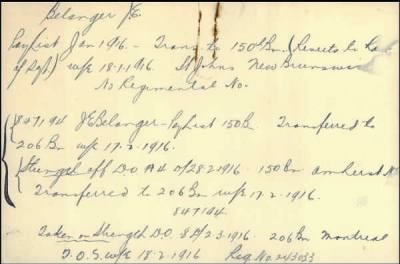 Belanger J.E.
Paylist Jan 1916 - Trans to 150th Bn. (Reverts to
of Sgt.) w/e 18-1-1916. St Johns New Brunswick
No Regimental No.
847194 J E Belanger - Paylist 150 Bn. Transferred to
206 Bn w/e 17-2-1916.
Strength off D.O. A 4 d/28-2-1916. 150 Bn Amherst
Transferred to 206 Bn w/e 17-2-1916.
847194.
Taken on Strength D.O. 8 2-3-1916. 206 Bn Montreal
T.O.S. w/e 18-2-1916 Reg. No. 243033